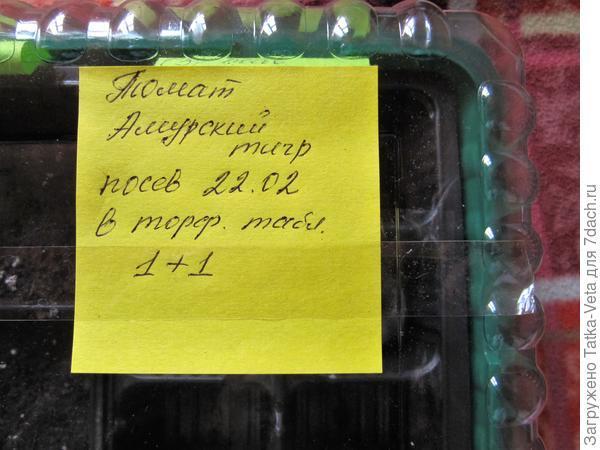 Томат
Амурский
тигр
посев 22.02
в торф. табл.
1+1
Загружено Tatka-Veta для 7dach.ru